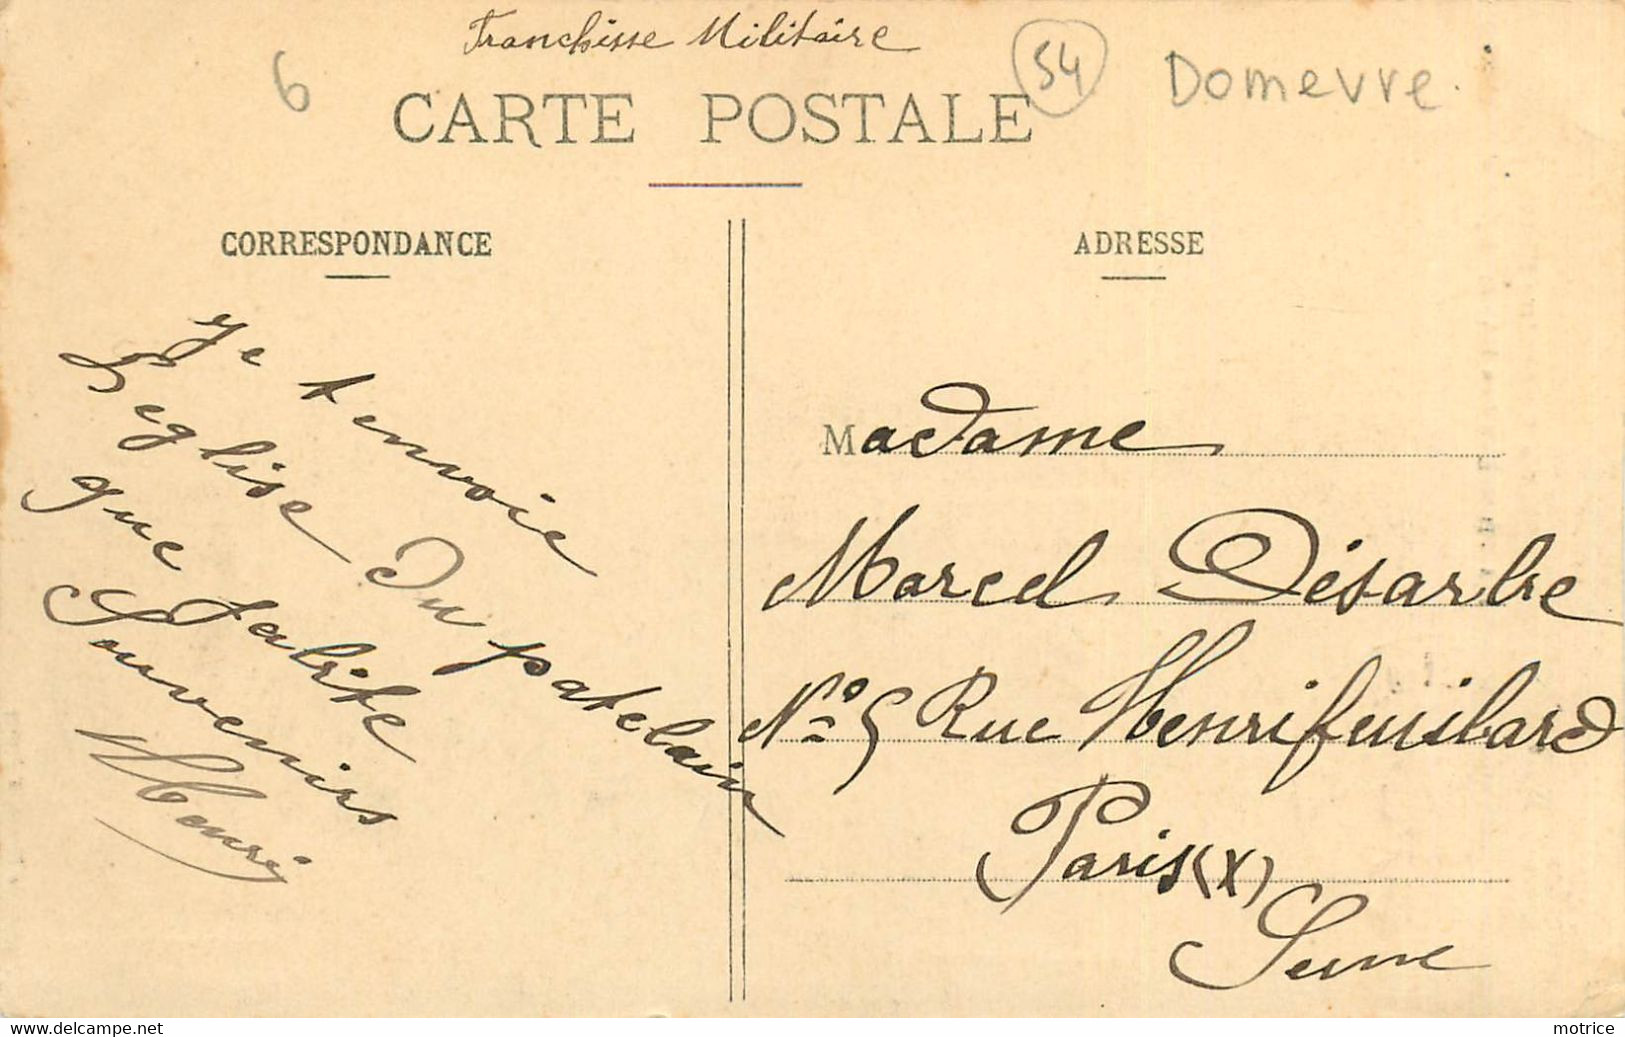 Franchisse Militaire
6
54
Domevre
CARTE POSTALE
CORRESPONDANCE
je t envoie
L'eglise Du patelain
que j'abite
Souvenirs
Henri
ADRESSE
Madame
Marcel Désarbre
N° 5 Rue Henrifeuillard
Paris (X)
Seine
motrice